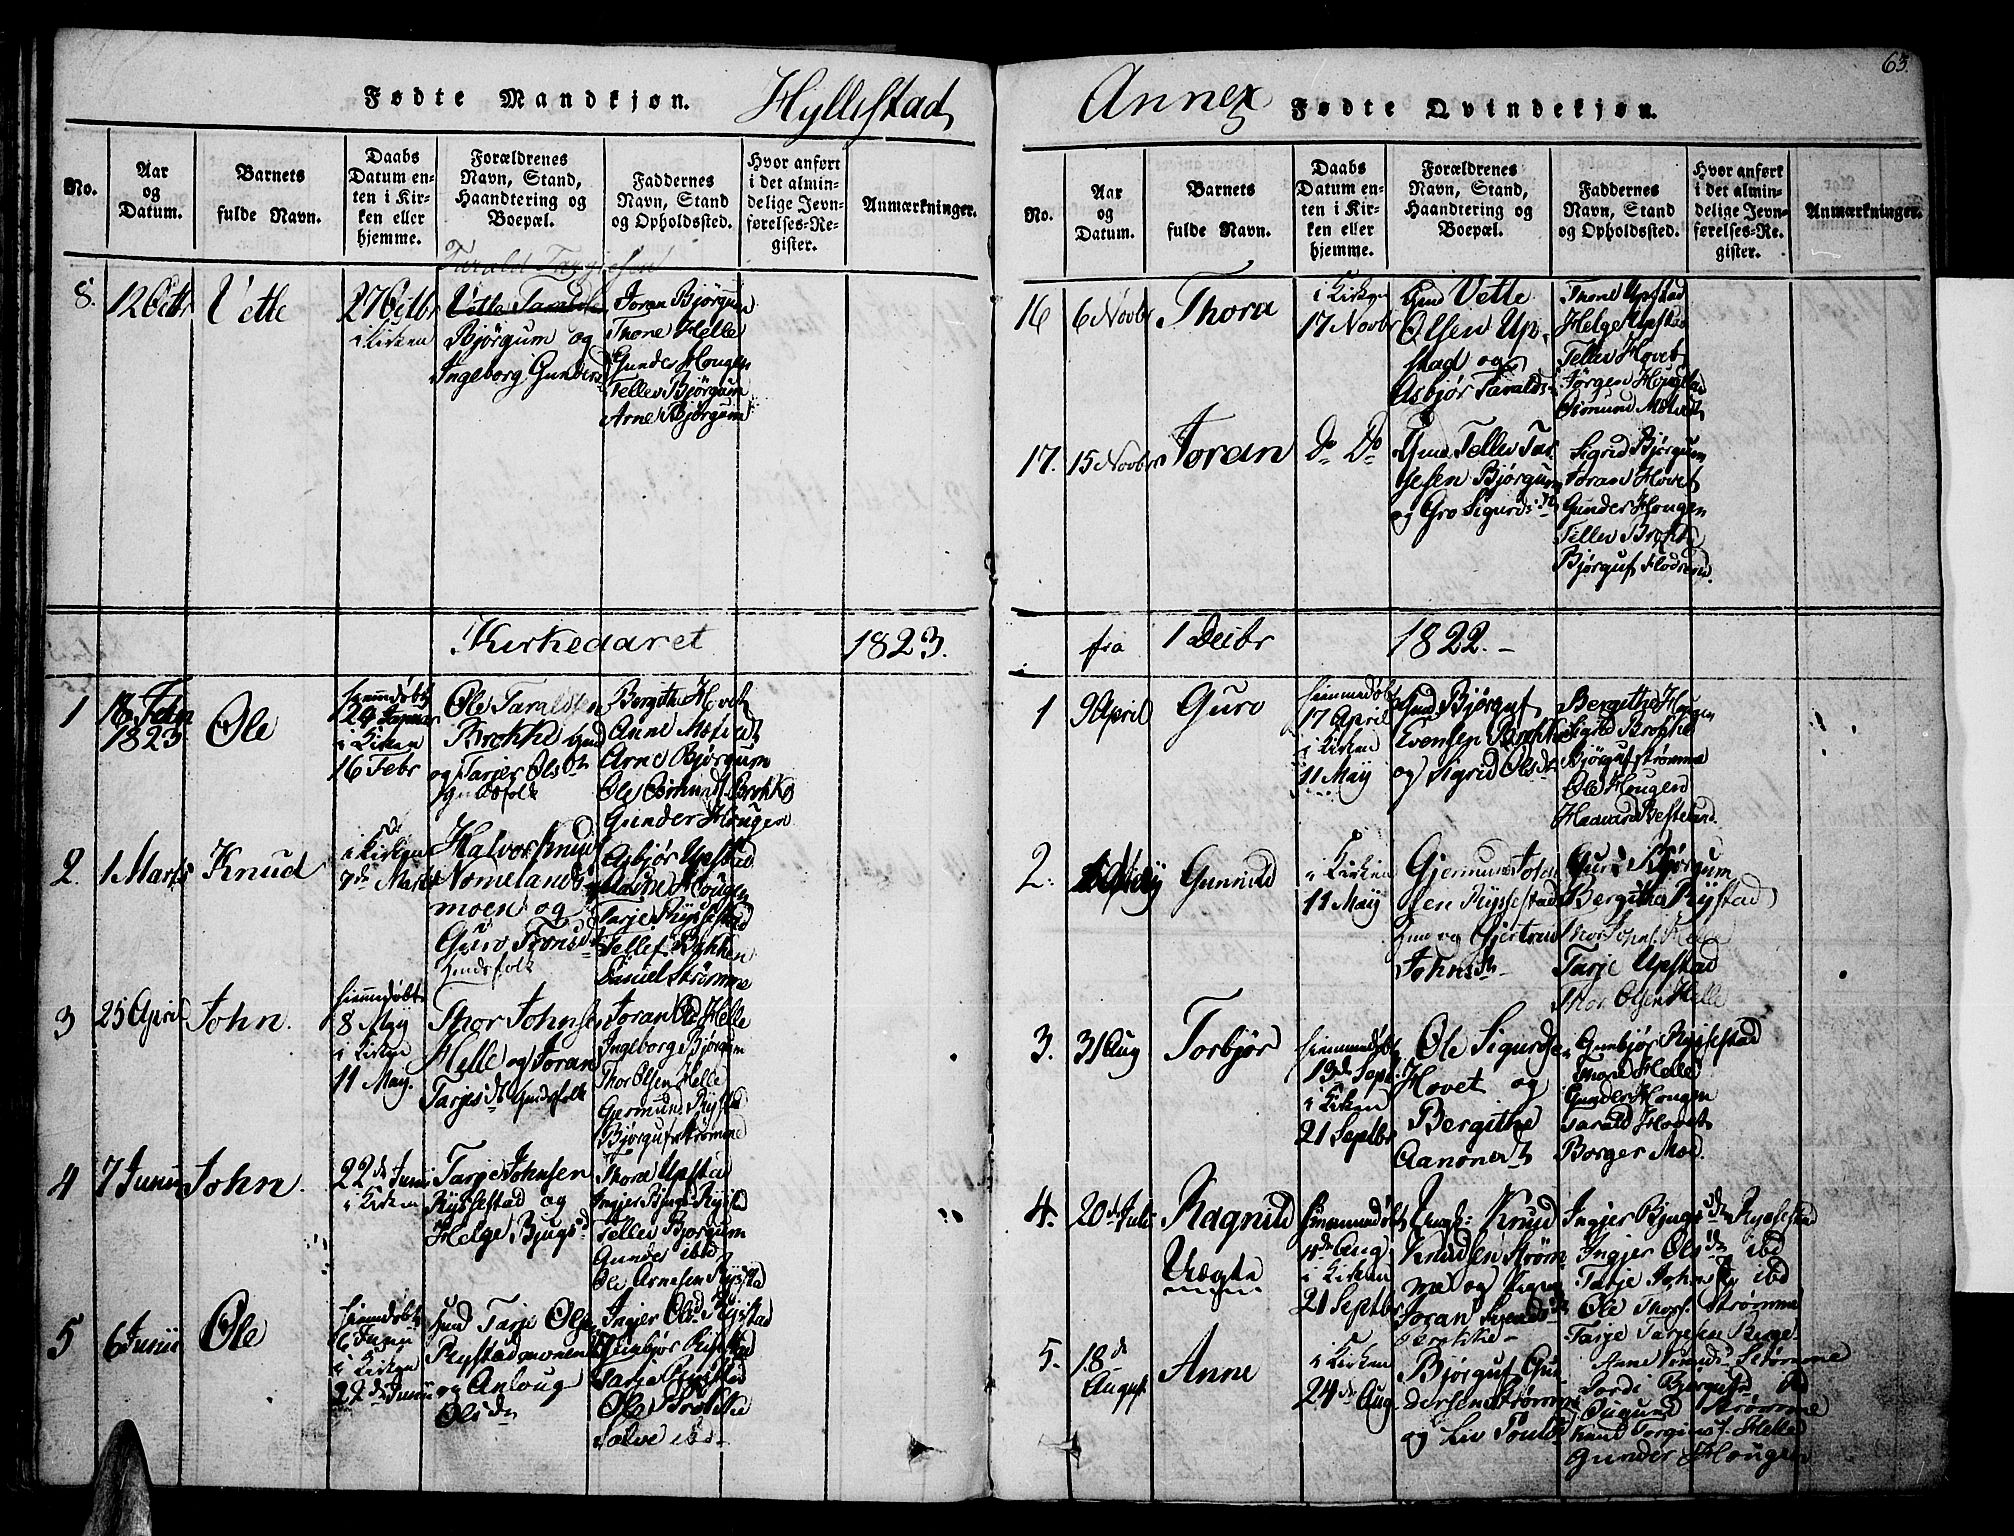 Hyllestad
Fødte Mandkjøn.
No.
Aar
og
Datum.
Barnets
fulde Navn.
Daabs
Datum en-
ten i Kir-
ken eller
hjemme.
Forældrenes
Navn, Stand,
Haandtering og
Boepæl.
Faddernes
Navn, Stand
og Opholdssted.
Hvor anført
i det almin-
delige Jevn-
førelses-Re-
gister.
Anmærkninger.
8.
12 Octbr
Vetle
27 Octbr
i Kirken
Tarald Targiesen
Vetle Taralds
Bjørgum og
Ingeborg Gunders
Joran Bjørgum
Thone Helle
Gunder Hougen
Tellev Bjørgum
Arne Bjørgum
Kirkeaaret
1823.
1
18 Febr
1823
Ole
hiemmedøbt
24 Januar
i Kirken
16 Febr
Ole Taraldsen
Brokke
og Tarjer Olsd
Bergithe Hovet
Anne
Arne Bjørgum
Ole Osmunds. Brokke
Gunder Hougen
2
1 Marts
Knud
i Kirken
7de Marts
Halvor Knuds
Nomelands
moen og
Guro
Asbjør Upstad
Hougen
Tarje Ryssestad
Tellef
Daniel Strømme
3
25 April
John.
hiemmedøbt
8 May
i Kirken
11 May.
Thor Johns
Helle og Joran
Tarjesd Gaardfolk
Joran Helle
Ingeborg Bjørgum
Thor Olsen Helle
Germund Rystad
Bjørguf Strømme
4
7 Junii
John.
22de Junii
i Kirken
Tarje Johnsen
Ryssestad og
Helge Bjugsd
Thora Upstad
Ingier Bjugsd Rystad
Tellev Bjørgum
Gunder ibd
Ole Arnesen Rystad
5
6 Junii
Ole
hiemmedøbt
6 Junii
i Kirken
22de Junii
Tarje Olsen
Rystadmonen
og Anloug
Olsdr
Ingier Olsd Rystad
Gunbjør Rystad
Tarje Rystad
Ole Brokke
Salve ibd
63.
Annex
Fødte Qvindekjøn.
No.
Aar
og
Datum.
Barnets
fulde Navn.
Daabs
Datum en-
ten i Kir-
ken eller
hjemme.
Forældrenes
Navn, Stand,
Haandtering og
Boepæl.
Faddernes
Navn, Stand
og Opholdssted.
Hvor anført
i det almin-
delige Jevn-
førelses-Re-
gister.
Anmærkninger.
16
6 Novbr
Thora
i Kirken
17 Novbr
Gmd Vetle
Olsen Up-
stad og
Asbjør Taralds
Thone Upstad
Helge Upstad
Tellev Hovet
Jørgen
Osmund
17.
15 Novbr
Joran
Do Do
Gmd Tellev Tar-
jesen Bjørgum
og Gro Sigurdsd
Sigrid Bjørgum
Joran Hovet
Gunder Hougen
Tellev Brokke
Bjørguf
fra
1 Decbr
1822.
1
9 April
Guro
hiemmedøbt
17 April
i Kirken
11 May
Gmd Bjørguf
Evensen Brokke
og Sigrid Olsdr
Bergithe Hougen
Sigrid Brokke
Bjørguf Strømme
Ole Hougen
Haavard
2.
May
Gunnild
i Kirken
11 May
Gjermund John
sen Ryssestad
og Gjertrud
Johnsdr
Guro Bjørgum
Bergithe Rystad
Thor Johns. Helle
Tarje Upstad
Thor Olsen Helle
3.
31 Aug
Torbjør
hiemmedøbt
13de Sept.
i Kirken
21 Septbr
Ole Sigurdsen
Hovet og
Bergithe
Aanonsd
Gunbjør Ryssestad
Thore Helle
Gunder Hougen
Tarald Hovet
Borger Moe
4.
20de Julii
Ragnild
Uægte
hiemmedøbt
11de Aug
i Kirken
21 Septbr
Ungk: Knud
Knudsen Strøm
me og Pigen
Joran
Brokke
Ingjer Bjugsdr Ryssestad
Ingjer Olsdr ibd
Tarje Johns. ibd
Ole Thors. Strømme
Tarje Tarjesen Berge.
5.
18de
August
Anne
i Kirken
24de Aug
Bjørguf Gun-
dersen Strømme
og Liv
Anne Strømme
Bjørgufsd ibd
Strømme
Knud Torgius. Helle
Gunder Hougen